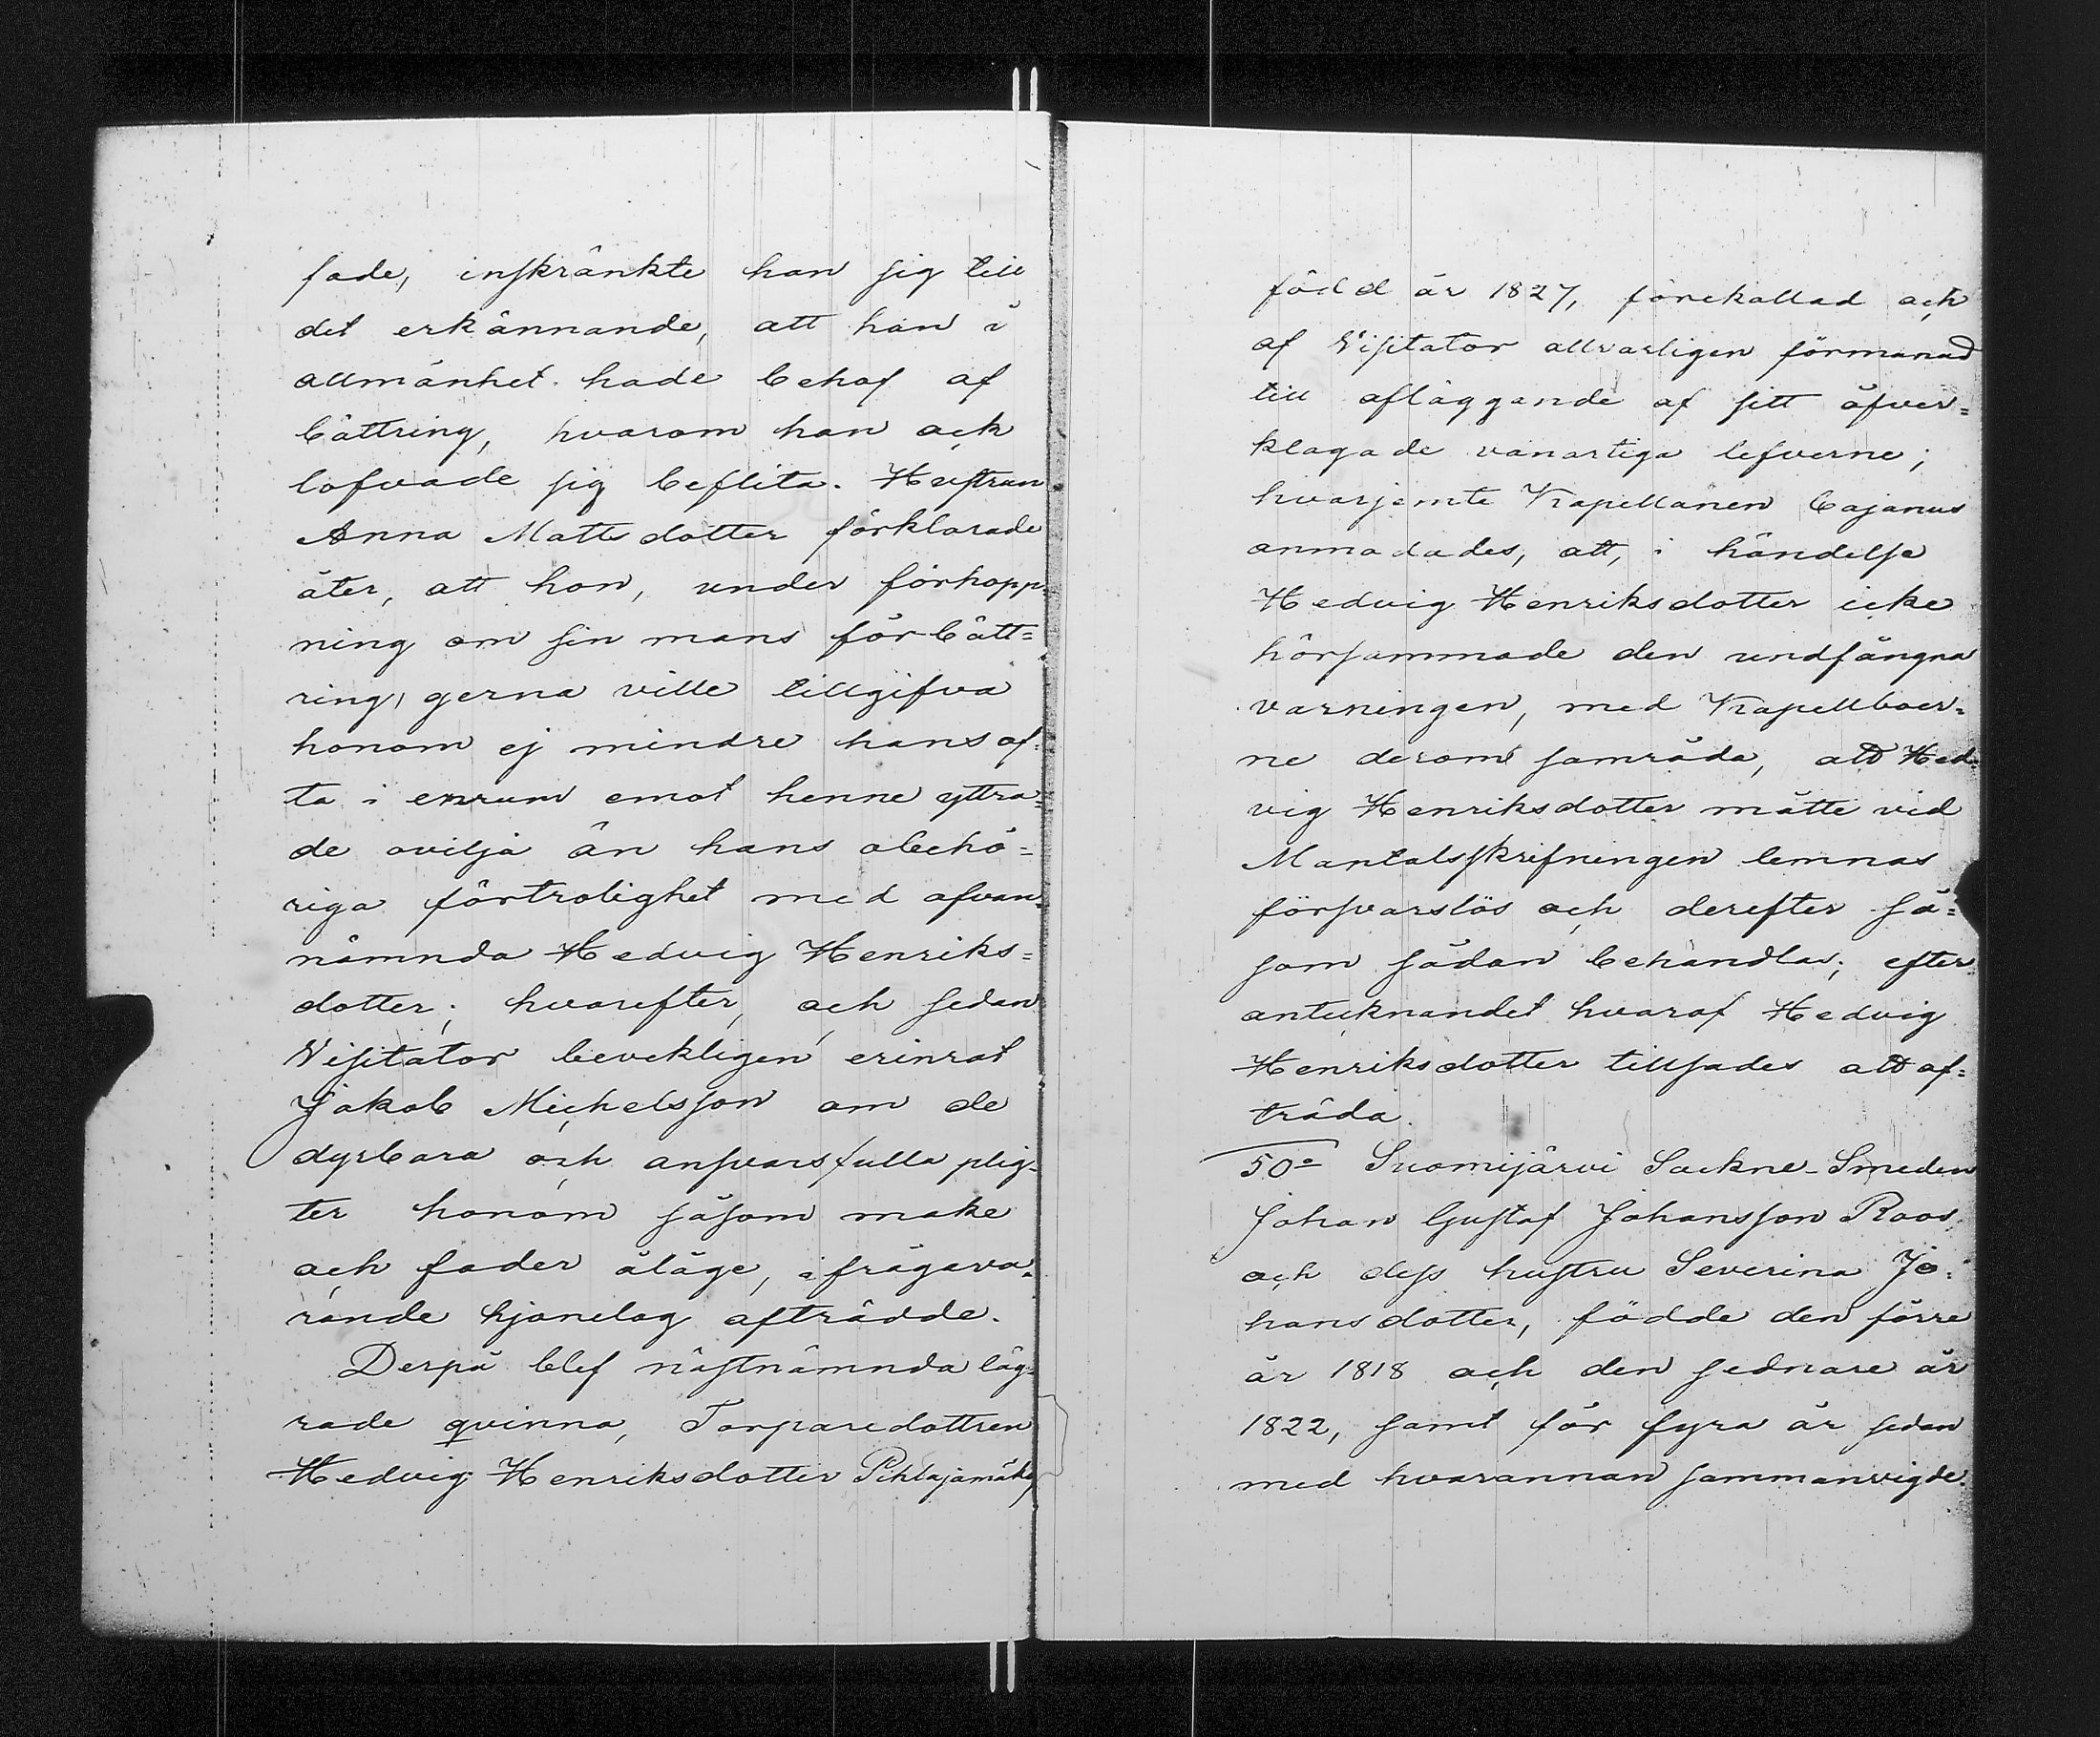 sade, inskränkte han sig till
det erkännande, att han i
allmänhet hade behof af
bättring, hvarom han ock
lofvade sig beflita. Hustrun
Anna Mattsdotter förklarade
åter, att hon, under förhopp-
ning om sin mans förbätt=
ring, gerna ville tillgifva
honom ej mindre hans of-
ta i enrum emot henne yttra=
de ovilja än hans obehö=
riga förtrolighet med ofvan-
nämnda Hedvig Henriks=
dotter; hvarefter, och sedan
Visitator bevekligen erinrat
Jakob Michelsson om de
dyrbara och ansvarsfulla plig-
ter honom såsom make
och fader åläge, ifrågava-
rande hjonelag afträdde.
Derpå blef nästnämnda läg-
rade qvinna, Torparedottren
Hedvig Henriksdotter Pihlajamäki,
född år 1827, förekallad och
af Visitator allvarligen förmanad
till afläggande af sitt öfver=
klagade vanartiga lefverne;
hvarjemte Kapellanen Cajanus
anmodades, att, i händelse
Hedvig Henriksdotter icke
hörsammade den undfångna
varningen, med Kapellboer=
ne derom samråda, att Hed-
vig Henriksdotter måtte vid
Mantalsskrifningen lemnas
försvarslös och derefter så=
som sådan behandlas; efter
antecknandet hvaraf Hedvig
Henriksdotter tillsades att af=
träda.
50o Suomijärvi Sockne-Smeden
Johan Gustaf Johansson Roos
och dess hustru Severina Jo-
hansdotter, födde den förre
år 1818 och den sednare år
1822, samt för fyra år sedan
med hvarannan sammanvigde.